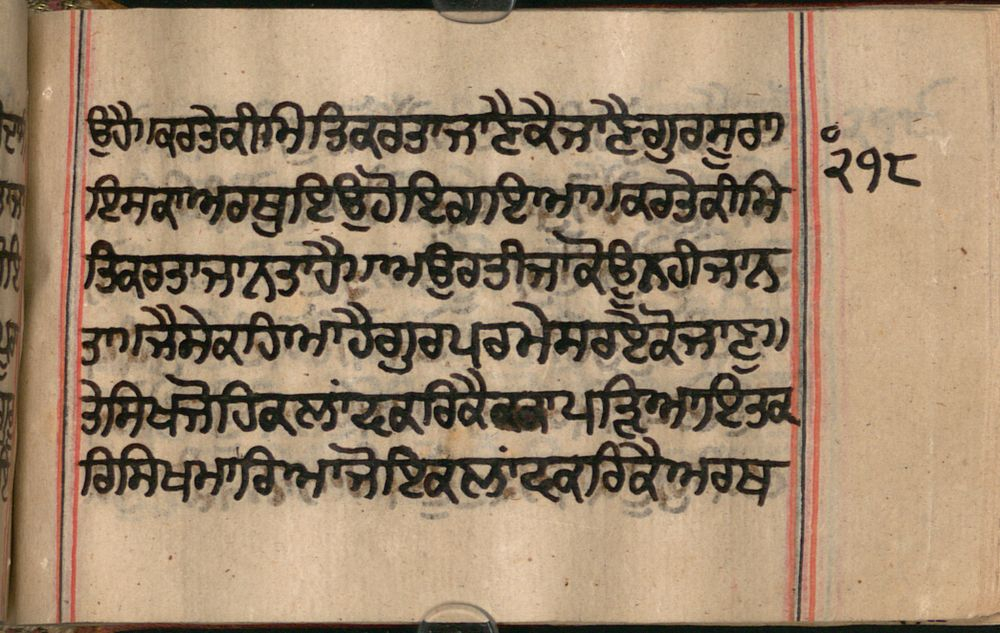 ਉਹੈ॥ਕਰਤੇਕੀਮਿਤਿਕਰਤਾਜਾਣੈਕੈਜਾਣੈਗੁਰਸੂਰਾ॥
੨੧੮
ਇਸਕਾਅਰਥੁਇਉਹੋਇਗਾਇਆ॥ਕਰਤੇਕੀਮਿ
ਤਿਕਰਤਾਜਾਨਤਾਹੈ॥ਅਉਰਤੀਜਾਕੋਊਨਹੀਜਾਨ
ਤਾ॥ਜੈਸੇਕਹਿਆਹੈਗੁਰਪਰਮੇਸਰਏਕੋਜਾਣੁ॥
ਤੇਸਿਖਜੋਹਿਕਲਾਂਦਕਰਿਕੈ ਪੜਿਆਇਤੁਕ
ਰਿਸਿਖਮਾਰਿਆਜੋਇਕਲਾਂਦਕਰਿਕੈਅਰਥ